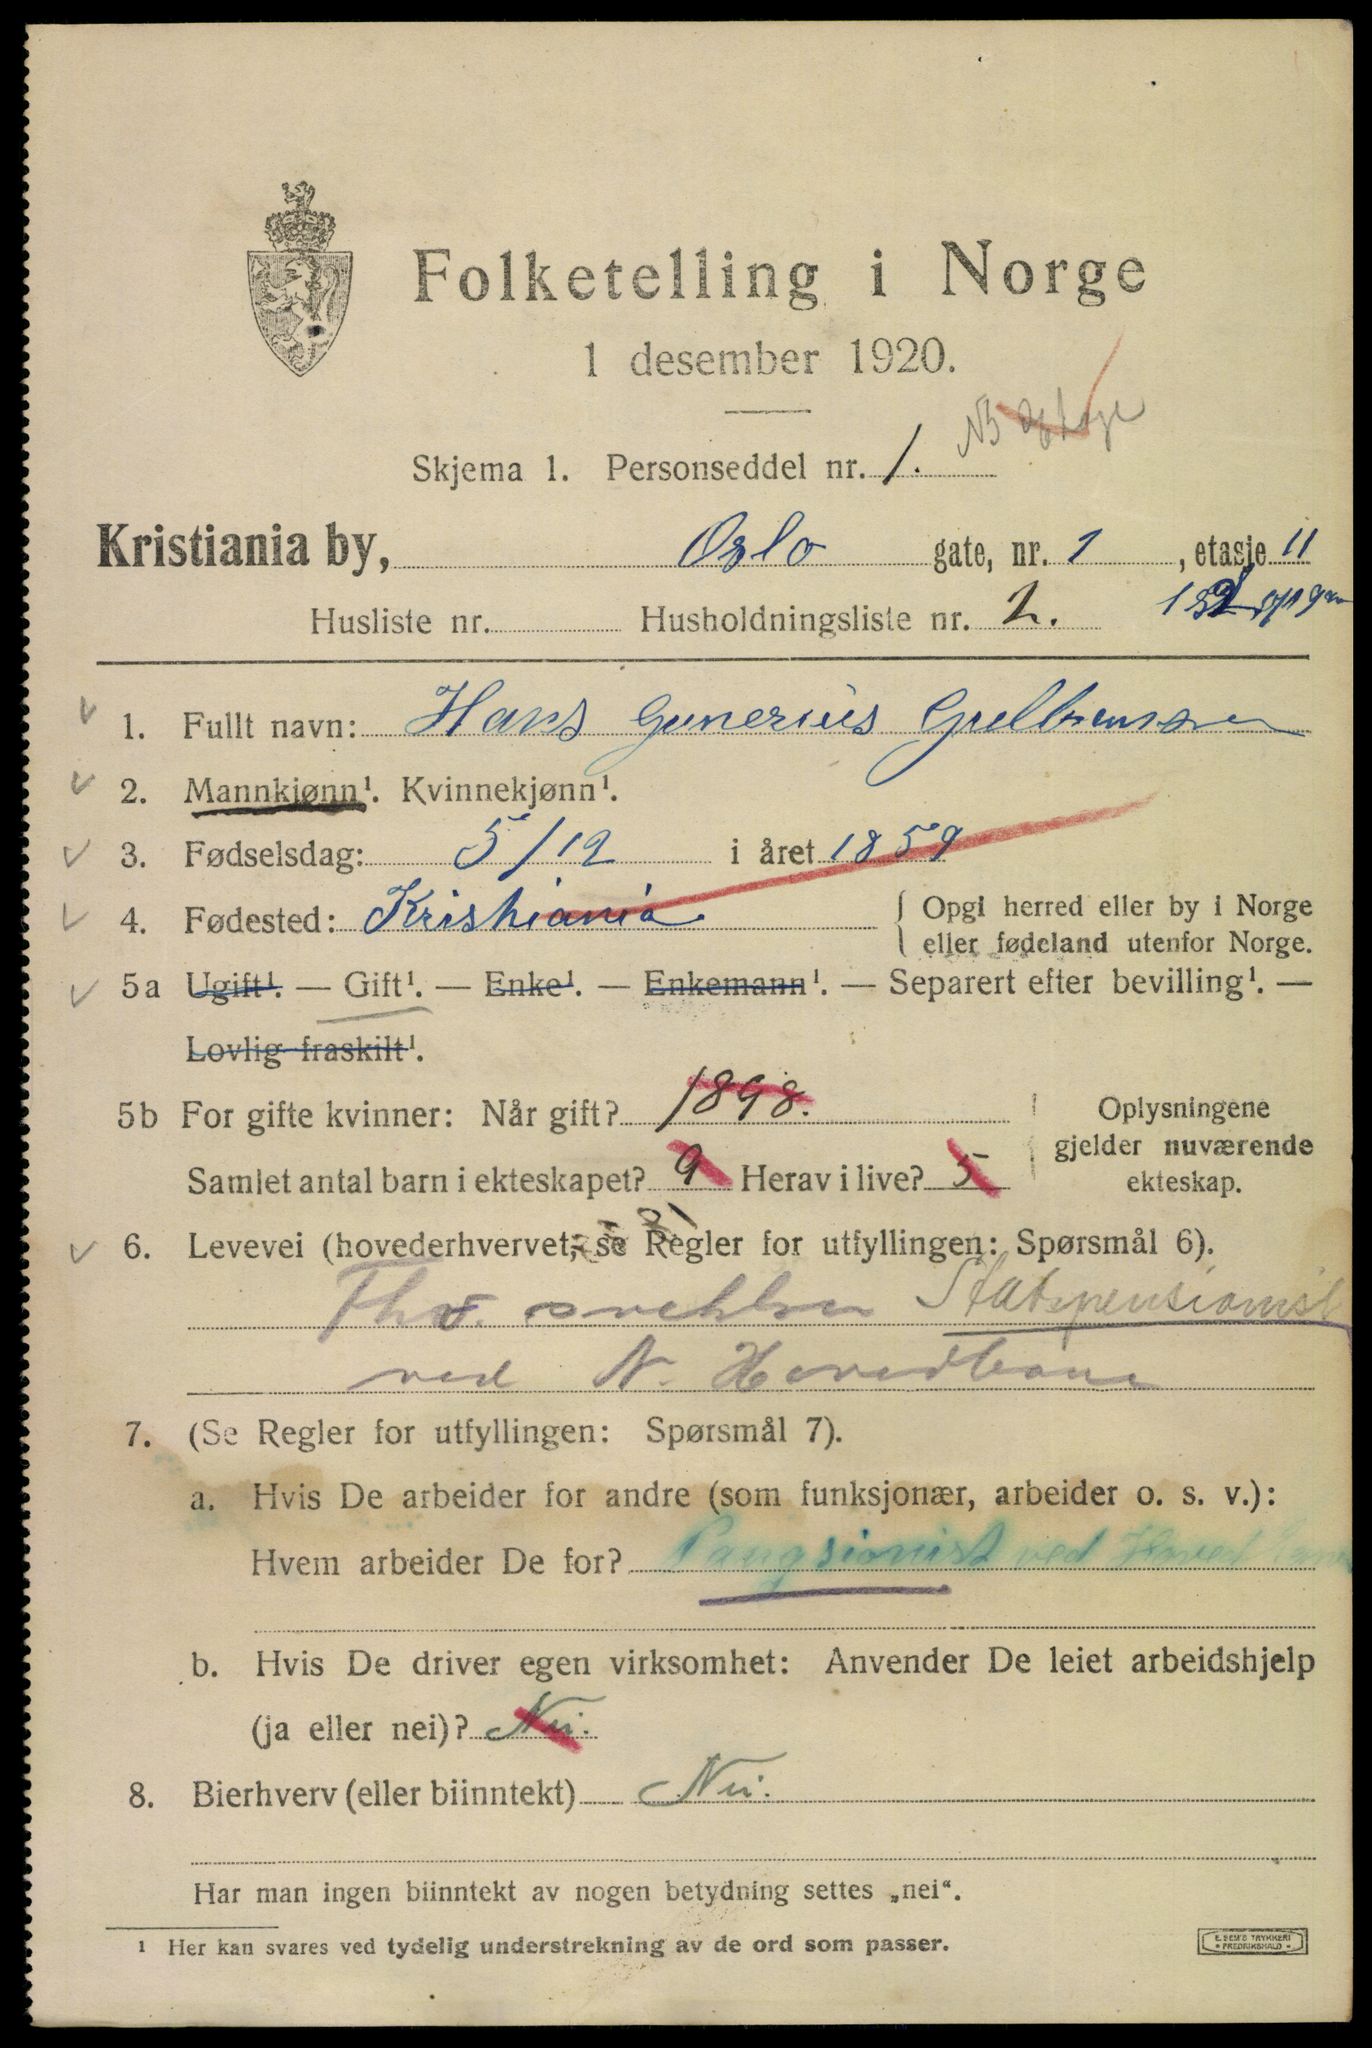 Folketelling i Norge
1 desember 1920.
NB
Skjema 1. Personseddel nr. 1.
Kristiania by, Oslo gate, nr. 1, etasje 11
Husliste nr. Husholdningsliste nr. 2.
1. Fullt navn: Hans Gunerius Gulbransen
2. Mannkjønn¹. Kvinnekjønn¹.
3. Fødselsdag: 5/12 i året 1859
4. Fødested: Kristiania { Opgi herred eller by i Norge
eller fødeland utenfor Norge.
5a Ugift¹. — Gift¹. — Enke¹. — Enkemann¹. — Separert efter bevilling¹. —
Lovlig fraskilt¹.
5b For gifte kvinner: Når gift? 1898. Oplysningene
gjelder nuværende
Samlet antal barn i ekteskapet? 9 Herav i live? 5 ekteskap.
6. Levevei (hovederhvervet; se Regler for utfyllingen: Spørsmål 6).
Statspensionist
ved N. Hovedbane
7. (Se Regler for utfyllingen: Spørsmål 7).
a. Hvis De arbeider for andre (som funksjonær, arbeider o. s. v.):
Hvem arbeider De for? Pangsionist ved Hoved
b. Hvis De driver egen virksomhet: Anvender De leiet arbeidshjelp
(ja eller nei)? Nei.
8. Bierhverv (eller biinntekt) Nei.
Har man ingen biinntekt av nogen betydning settes „nei“.
¹ Her kan svares ved tydelig understrekning av de ord som passer.
E. SEM'S TRYKKERI
FREDRIKSHALD